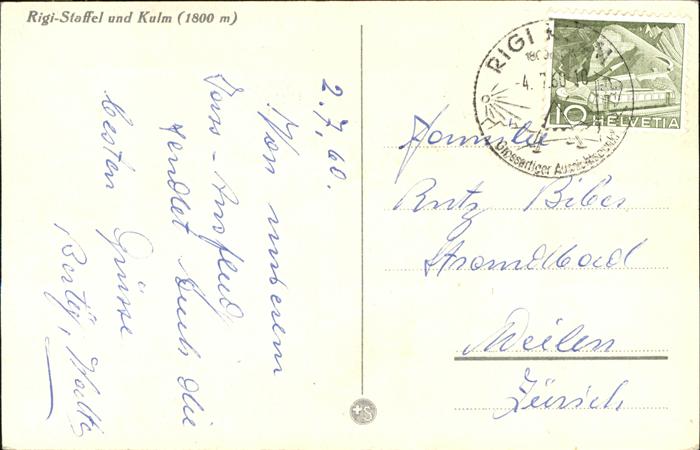 Rigi-Staffel und Kulm (1800 m)
2.7.60.
Von unserem
sendet Euch die
besten Grüsse
RIGI KULM
1800
-4. 7.60.-10
Grossartiger Aussichtspunkt
10
HELVETIA
Familie
Rutz Biber
Strandbad
Meilen
Zürich
+S